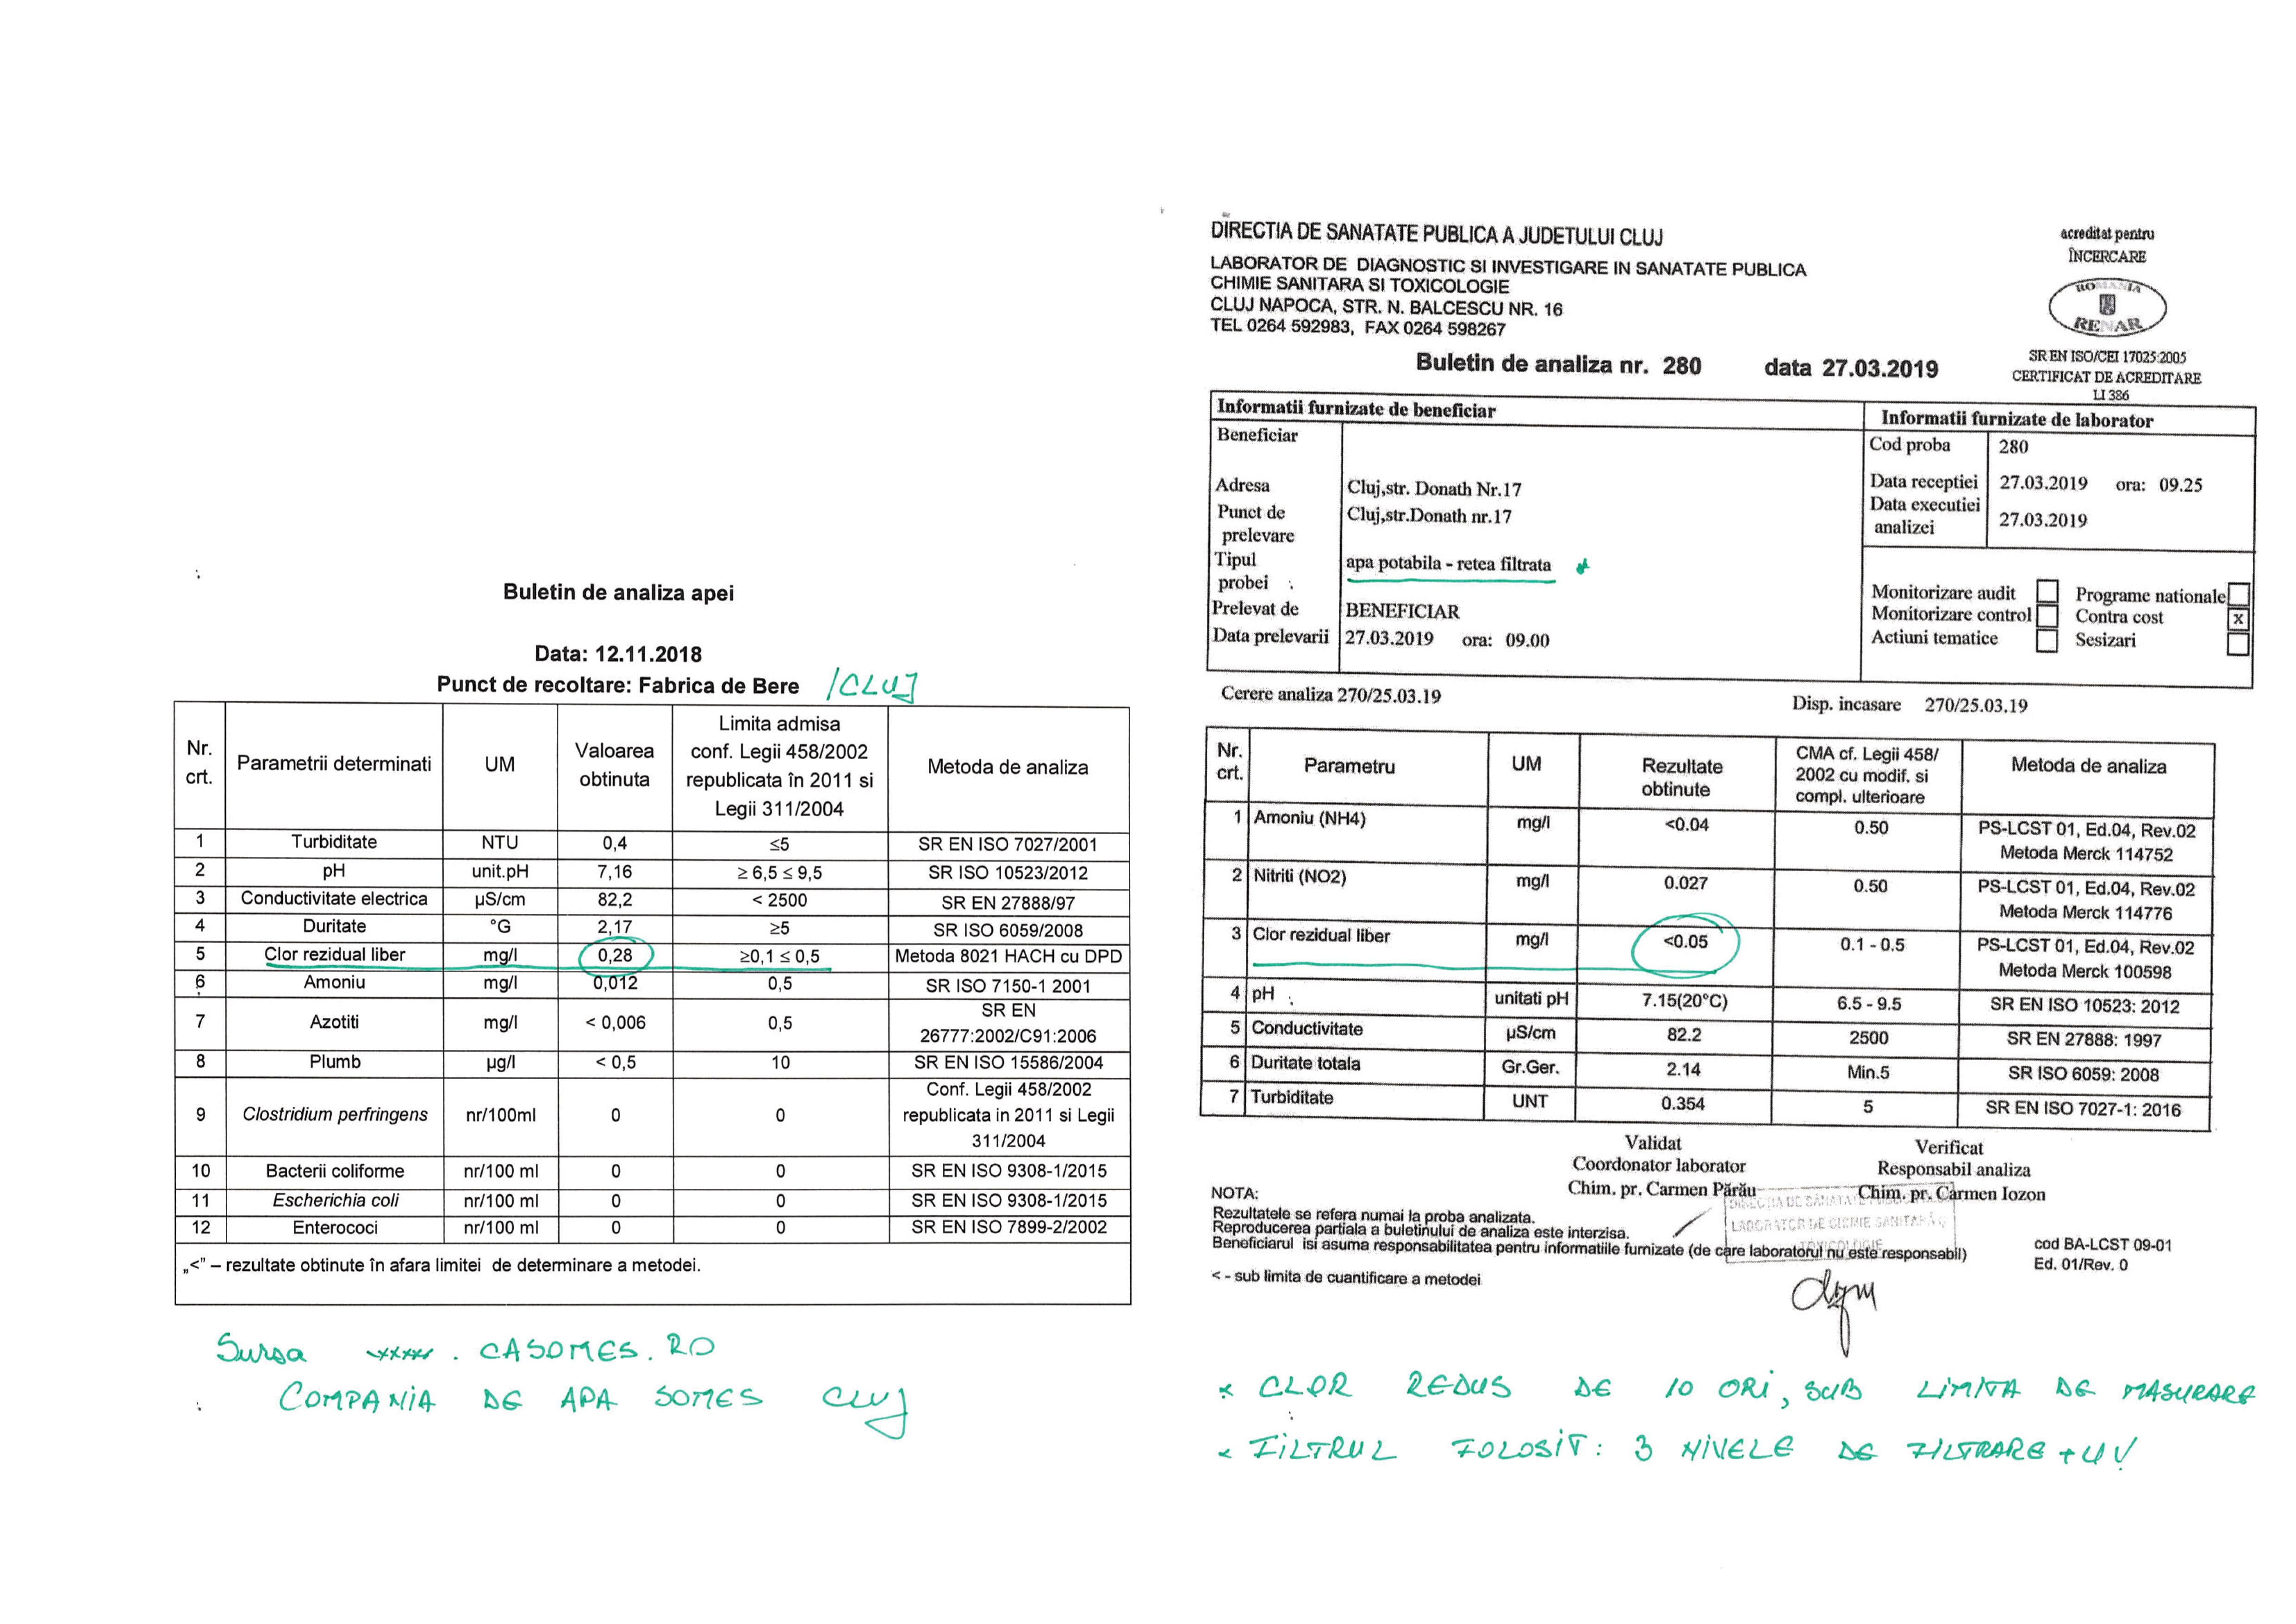 Buletin de analiza apei
Data: 12.11.2018
Punct de recoltare: Fabrica de Bere /CLUJ
Nr. crt. Parametrii determinati UM Valoarea obtinuta Limita admisa conf. Legii 458/2002 republicata în 2011 si Legii 311/2004 Metoda de analiza
1 Turbiditate NTU 0,4 ≤5 SR EN ISO 7027/2001
2 pH unit.pH 7,16 ≥ 6,5 ≤ 9,5 SR ISO 10523/2012
3 Conductivitate electrica µS/cm 82,2 < 2500 SR EN 27888/97
4 Duritate °G 2,17 ≥5 SR ISO 6059/2008
5 Clor rezidual liber mg/l 0,28 ≥0,1 ≤ 0,5 Metoda 8021 HACH cu DPD
6 Amoniu mg/l 0,012 0,5 SR ISO 7150-1 2001
7 Azotiti mg/l < 0,006 0,5 SR EN 26777:2002/C91:2006
8 Plumb µg/l < 0,5 10 SR EN ISO 15586/2004
9 Clostridium perfringens nr/100ml 0 0 Conf. Legii 458/2002 republicata in 2011 si Legii 311/2004
10 Bacterii coliforme nr/100 ml 0 0 SR EN ISO 9308-1/2015
11 Escherichia coli nr/100 ml 0 0 SR EN ISO 9308-1/2015
12 Enterococi nr/100 ml 0 0 SR EN ISO 7899-2/2002
„<” – rezultate obtinute în afara limitei de determinare a metodei.
Sursa . CASOMES.RO
COMPANIA DE APA SOMES CLUJ
DIRECTIA DE SANATATE PUBLICA A JUDETULUI CLUJ
LABORATOR DE DIAGNOSTIC SI INVESTIGARE IN SANATATE PUBLICA
CHIMIE SANITARA SI TOXICOLOGIE
CLUJ NAPOCA, STR. N. BALCESCU NR. 16
TEL 0264 592983, FAX 0264 598267
acreditat pentru
ÎNCERCARE
ROMANIA
RENAR
SR EN ISO/CEI 17025:2005
CERTIFICAT DE ACREDITARE
LI 386
Buletin de analiza nr. 280 data 27.03.2019
Informatii furnizate de beneficiar
Beneficiar
Adresa Cluj,str. Donath Nr.17
Punct de prelevare Cluj,str.Donath nr.17
Tipul probei : apa potabila - retea filtrata
Prelevat de BENEFICIAR
Data prelevarii 27.03.2019 ora: 09.00
Informatii furnizate de laborator
Cod proba 280
Data receptiei 27.03.2019 ora: 09.25
Data executiei analizei 27.03.2019
Monitorizare audit Programe nationale
Monitorizare control Contra cost x
Actiuni tematice Sesizari
Cerere analiza 270/25.03.19 Disp. incasare 270/25.03.19
Nr. crt. Parametru UM Rezultate obtinute CMA cf. Legii 458/ 2002 cu modif. si compl. ulterioare Metoda de analiza
1 Amoniu (NH4) mg/l <0.04 0.50 PS-LCST 01, Ed.04, Rev.02 Metoda Merck 114752
2 Nitriti (NO2) mg/l 0.027 0.50 PS-LCST 01, Ed.04, Rev.02 Metoda Merck 114776
3 Clor rezidual liber mg/l <0.05 0.1 - 0.5 PS-LCST 01, Ed.04, Rev.02 Metoda Merck 100598
4 pH unitati pH 7.15(20°C) 6.5 - 9.5 SR EN ISO 10523: 2012
5 Conductivitate µS/cm 82.2 2500 SR EN 27888: 1997
6 Duritate totala Gr.Ger. 2.14 Min.5 SR ISO 6059: 2008
7 Turbiditate UNT 0.354 5 SR EN ISO 7027-1: 2016
Validat Verificat
Coordonator laborator Responsabil analiza
Chim. pr. Carmen Părău Chim. pr. Carmen Iozon
DIRECTIA DE SĂNĂTATE
LABORATOR DE CHIMIE SANITARĂ
TOXICOLOGIE
NOTA:
Rezultatele se refera numai la proba analizata.
Reproducerea partiala a buletinului de analiza este interzisa.
Beneficiarul isi asuma responsabilitatea pentru informatiile furnizate (de care laboratorul nu este responsabil)
< - sub limita de cuantificare a metodei
cod BA-LCST 09-01
Ed. 01/Rev. 0
* CLOR REDUS DE 10 ORI, SUB LIMITA DE MASURARE
* FILTRUL FOLOSIT: 3 NIVELE DE FILTRARE + UV